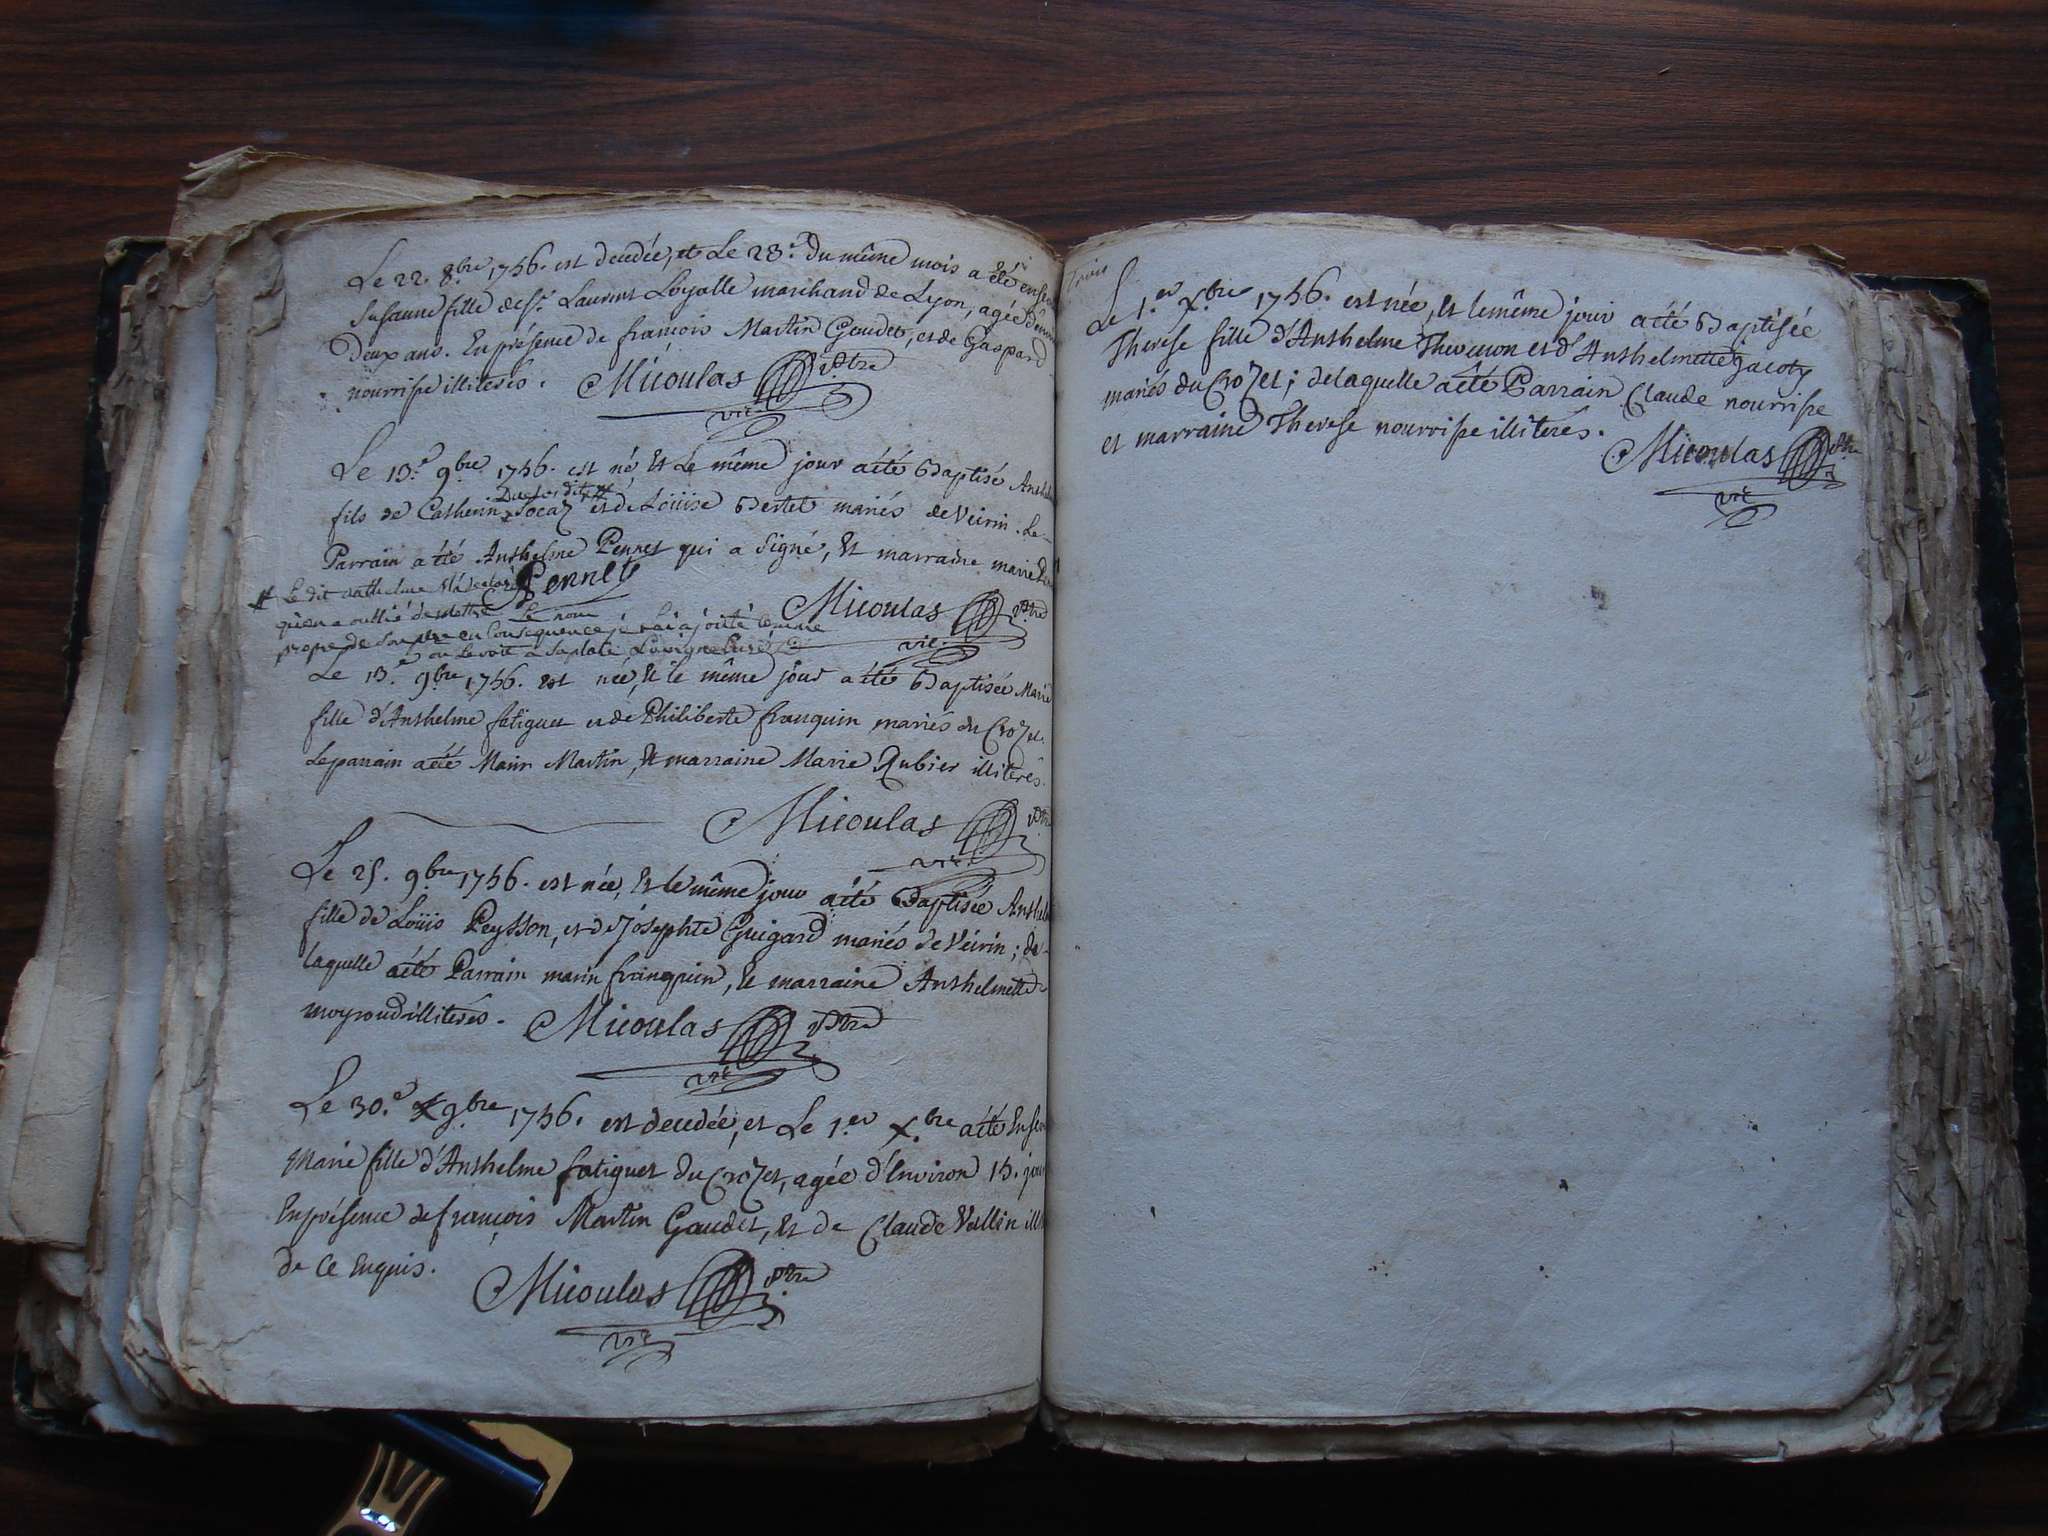 Le 22. 8.bre 1756. est decedée, et Le 23.e du même mois a été
Susanne fille de Sr. Laurent Loyalle marchand de Lyon, agée
Deux ans. En présence de françois Martin Goudet, et de Gaspard
nourrisse illiterés. Micoulas ptre
vic
Le 13.e 9.bre 1756. est né, Et Le même jour a été Baptisé
fils de Catherin Jocaz et de Loüise Bertet mariés de Veirin. Le
Parrain a été Anthelme Pennet qui a signé, Et marraine marie
Pennet
Micoulas ptre
vic
Le dit anthelme
qu'on a oublié de mettre Le nom
propre de Son pere en Consequence je l'ai ajouté comme
on Le voit a Sa place
Le 13.e 9.bre 1756. est née, Et le même jour a été Baptisée Marie
fille d'Anthelme fatiguet et de Philiberte franquin mariés du Crozet.
Le parrain a été Marin Martin, Et marraine Marie Rubier illiterés.
Micoulas ptre
vic
Le 25. 9.bre 1756. est née, Et le même jour a été Baptisée
fille de Loüis Peysson, et de Joséphte Guigard mariés de Veirin; de
laquelle a été Parrain marin franquin, Et marraine Anthelmette
moyroud illiterés. Micoulas ptre
vic
Le 30.e 9.bre 1756. est decedée, et Le 1.er X.bre a été
Marie fille d'Anthelme fatiguet du Crozet, agée d'Environ 15.
En présence de françois Martin Gaudet, Et de Claude Vallin
de Ce Enquis. Micoulas ptre
vic
Trois
Le 1.er X.bre 1756. est née, Et le même jour a été Baptisée
Therese fille d'Anthelme Thevenon et d'Anthelmette Jacoty
mariés du Crozet; de laquelle a été Parrain Claude nourrisse
et marraine Therese nourrisse illiterés.
Micoulas ptre
vic